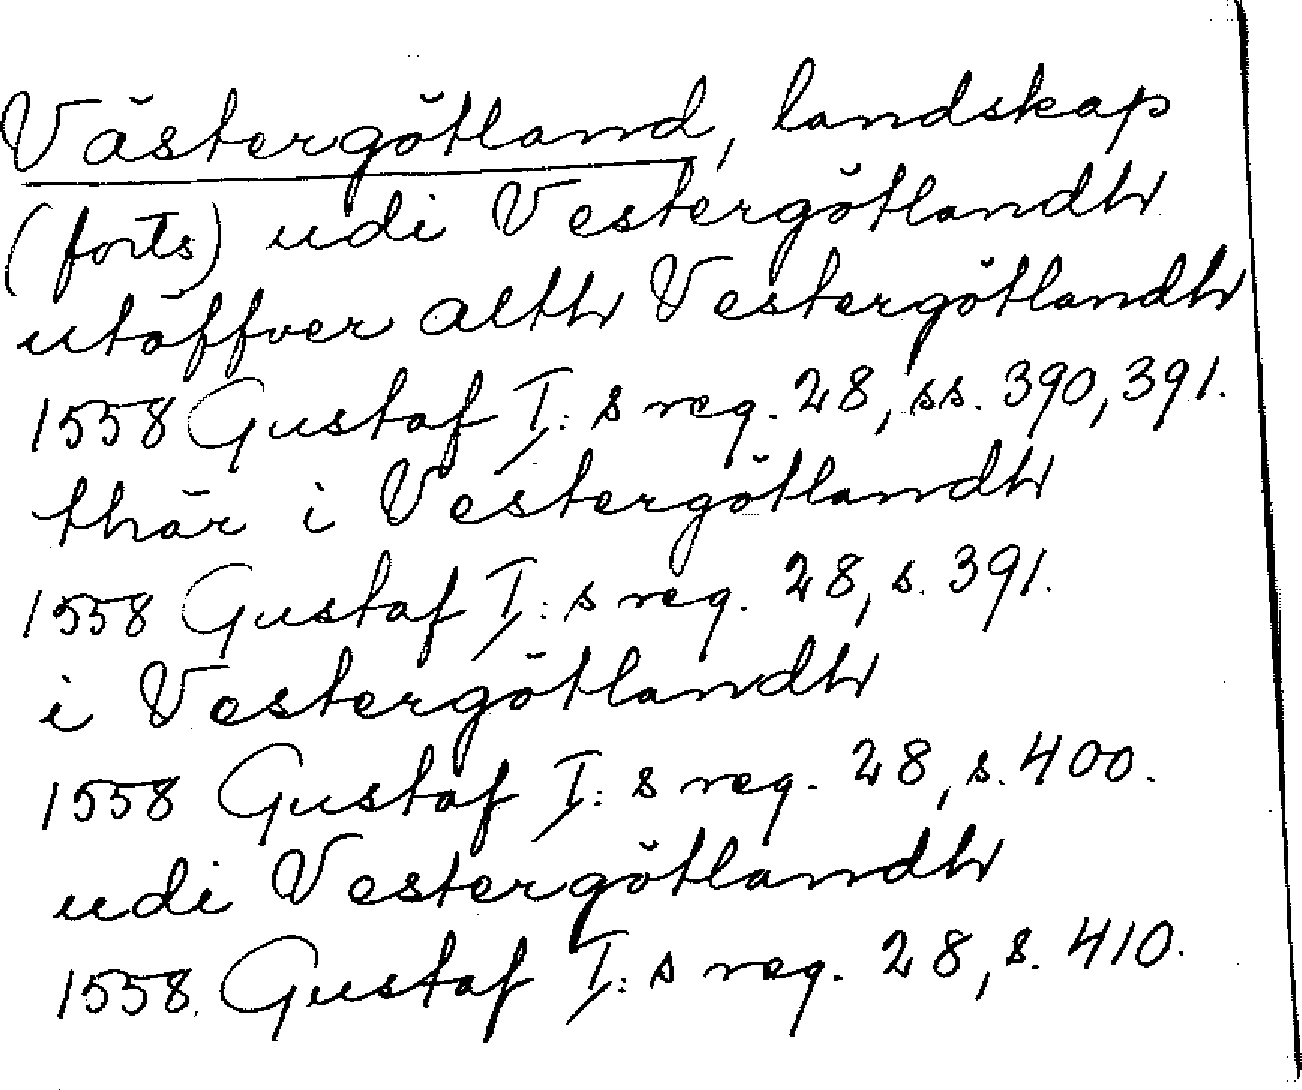 Västergötland, landskap
(forts) udi Vestergötlandh
utöffver altth Vestergötlandh
1558 Gustaf I:s reg. 28, ss. 390, 391.
thär i Vestergötlandh
1558 Gustaf I:s reg. 28, s. 391.
i Vestergötlandh
1558 Gustaf I:s reg. 28, s. 400.
udi Vestergötlandh
1558. Gustaf I:s reg. 28, s. 410.